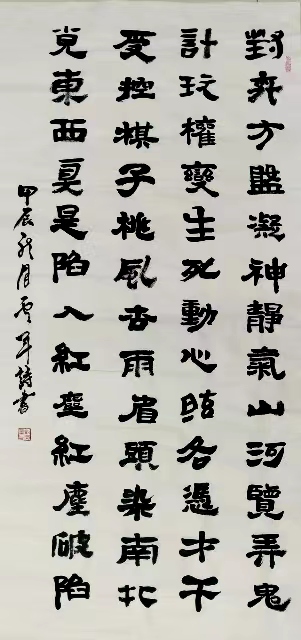 對弈方監凝神靜氣山河覽弄鬼
計玩權變生死動心各憑才干
受控棋子桃風杏雨眉頭染南北
東西是陷入紅塵紅塵破陷
甲辰月軍詩書